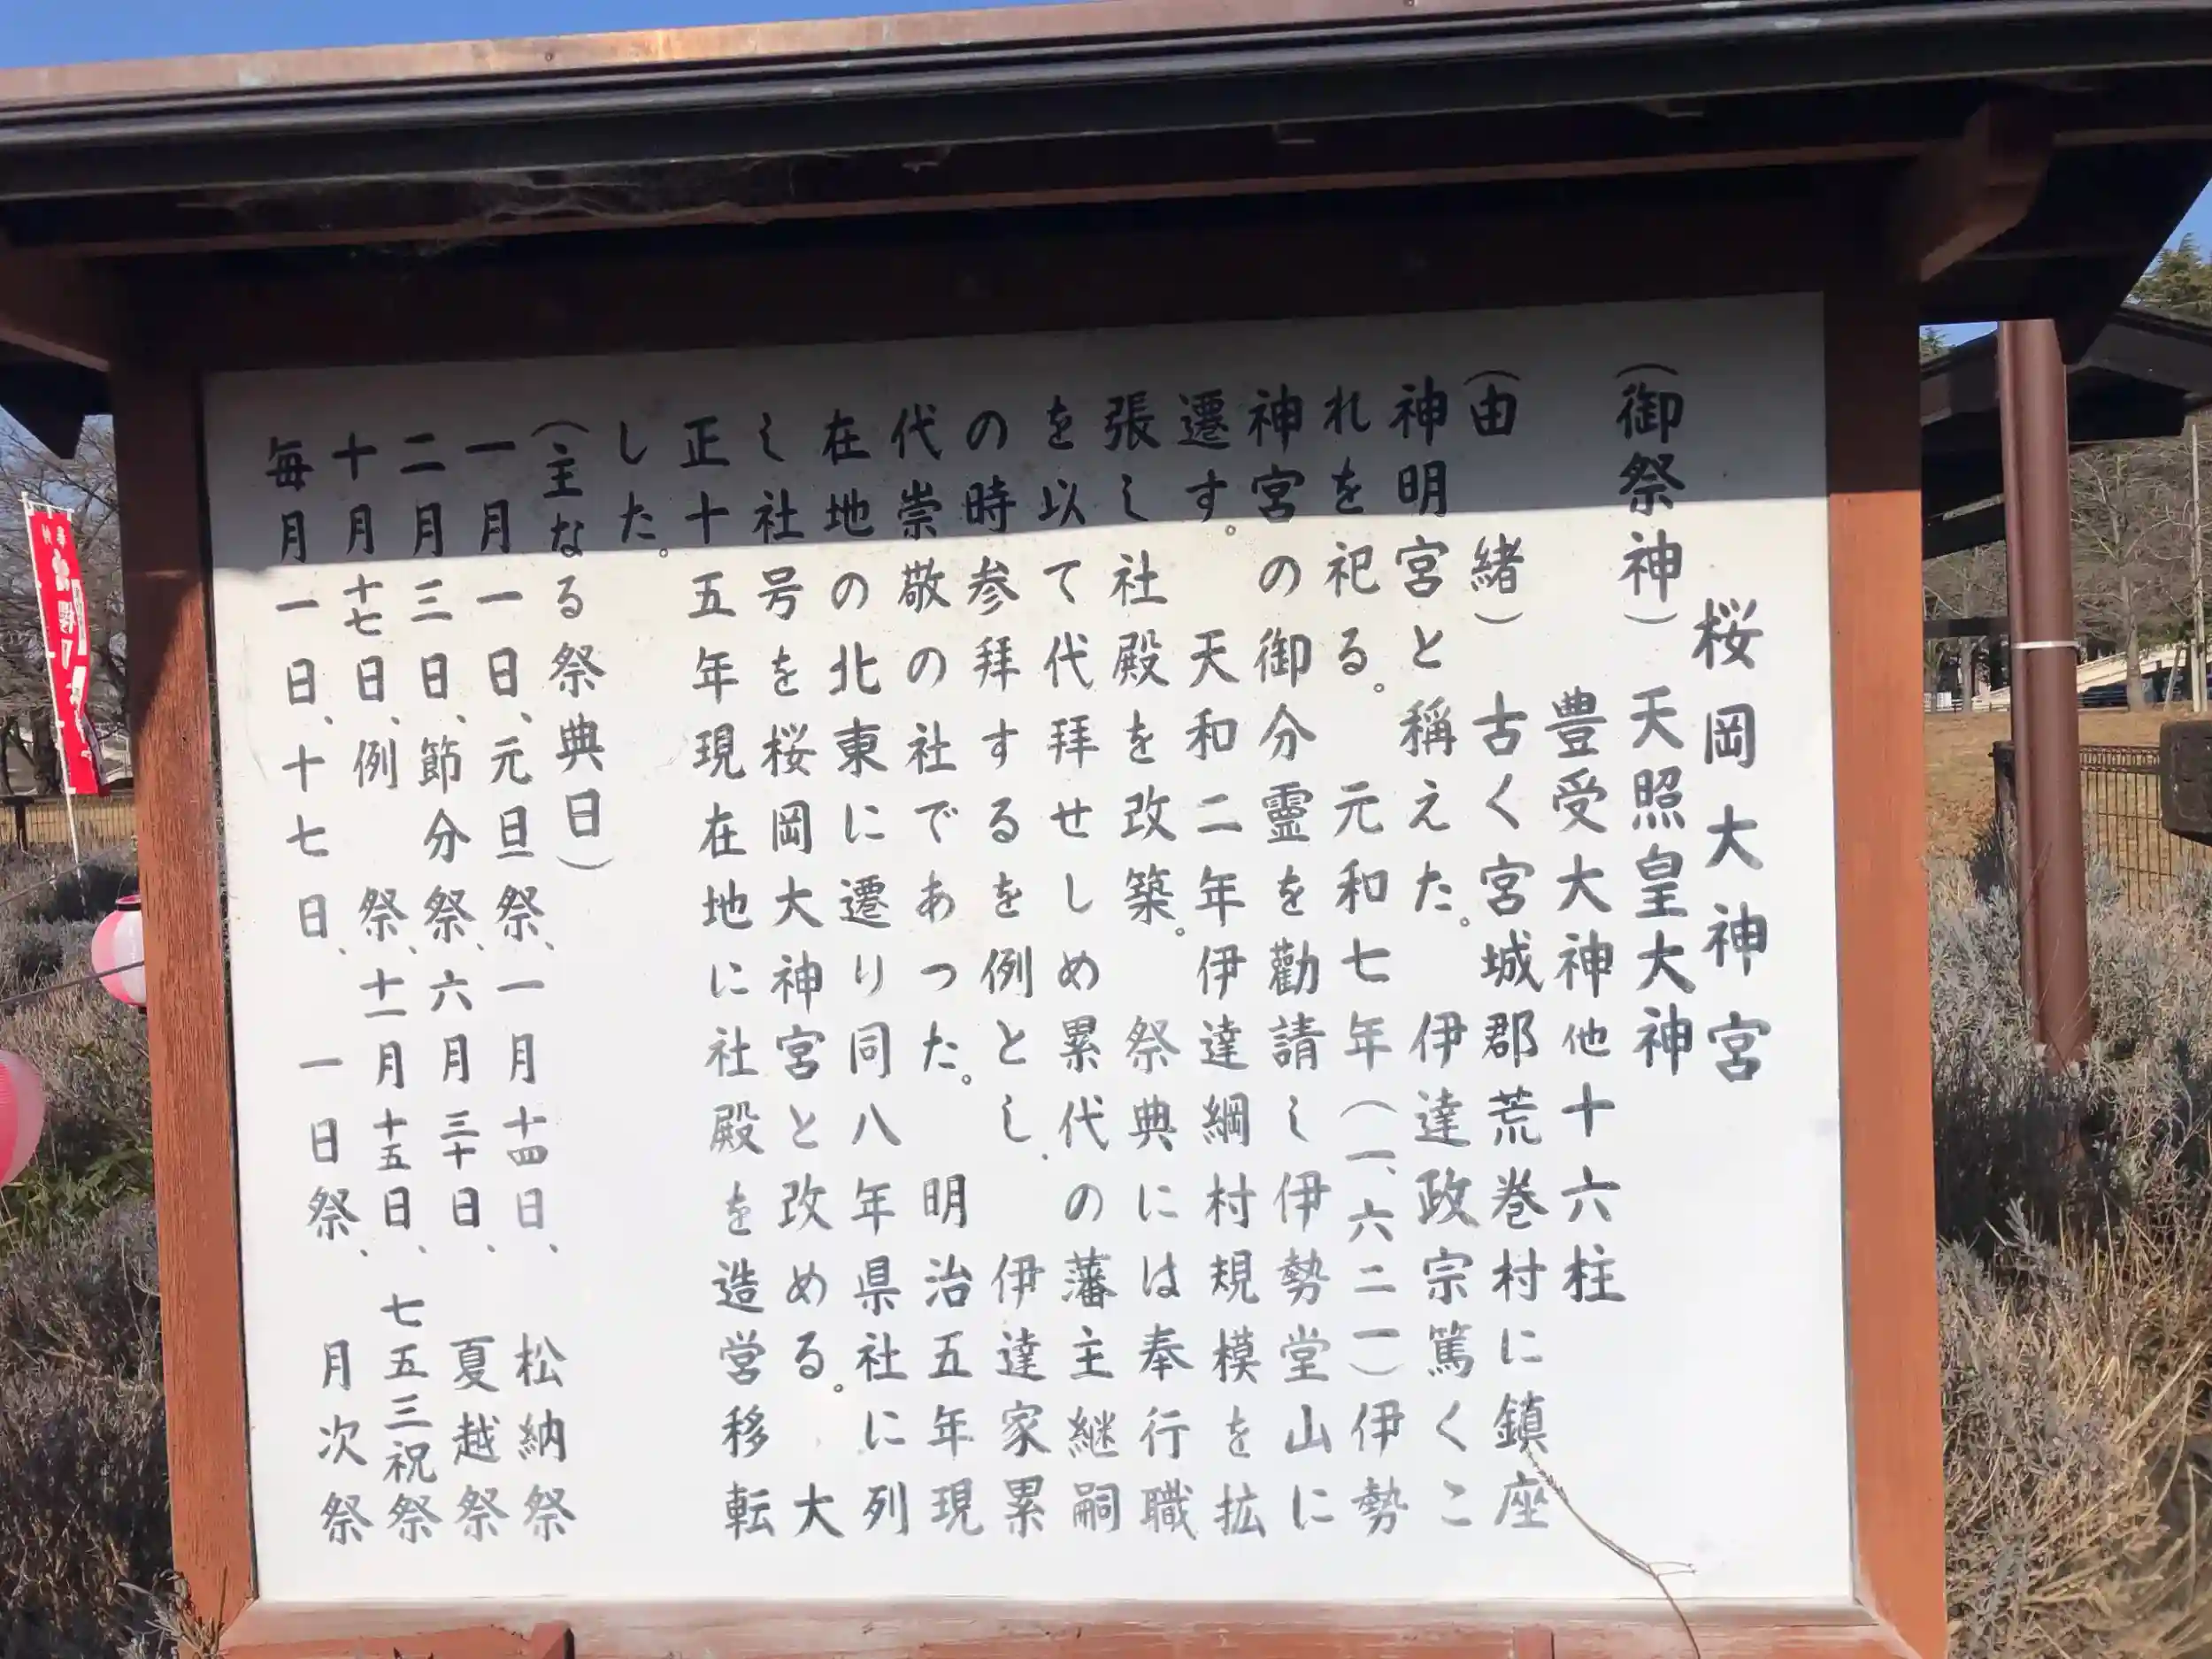 桜岡大神宮
（御祭神）天照皇大神
豊受大神他十六柱
（由緒）古く宮城郡荒巻村に鎮座
神明宮と稱えた。伊達政宗篤くこ
れを祀る。元和七年（一、六二一）伊勢
神宮の御分霊を勸請し伊勢堂山に
遷す。天和二年伊達綱村規模を拡
張し社殿を改築。祭典には奉行職
を以て代拜せしめ累代の藩主継嗣
の時参拜するを例とし、伊達家累
代崇敬の社であった。明治五年現
在地の北東に遷り同八年県社に列
し社号を桜岡大神宮と改める。大
正十五年現在地に社殿を造営移転
した。
（主なる祭典日）
一月一日、元旦祭、一月十四日、松納祭
二月三日、節分祭、六月三十日、夏越祭
十月十七日、例祭、十一月十五日、七五三祝祭
毎月一日、十七日、一日祭、月次祭